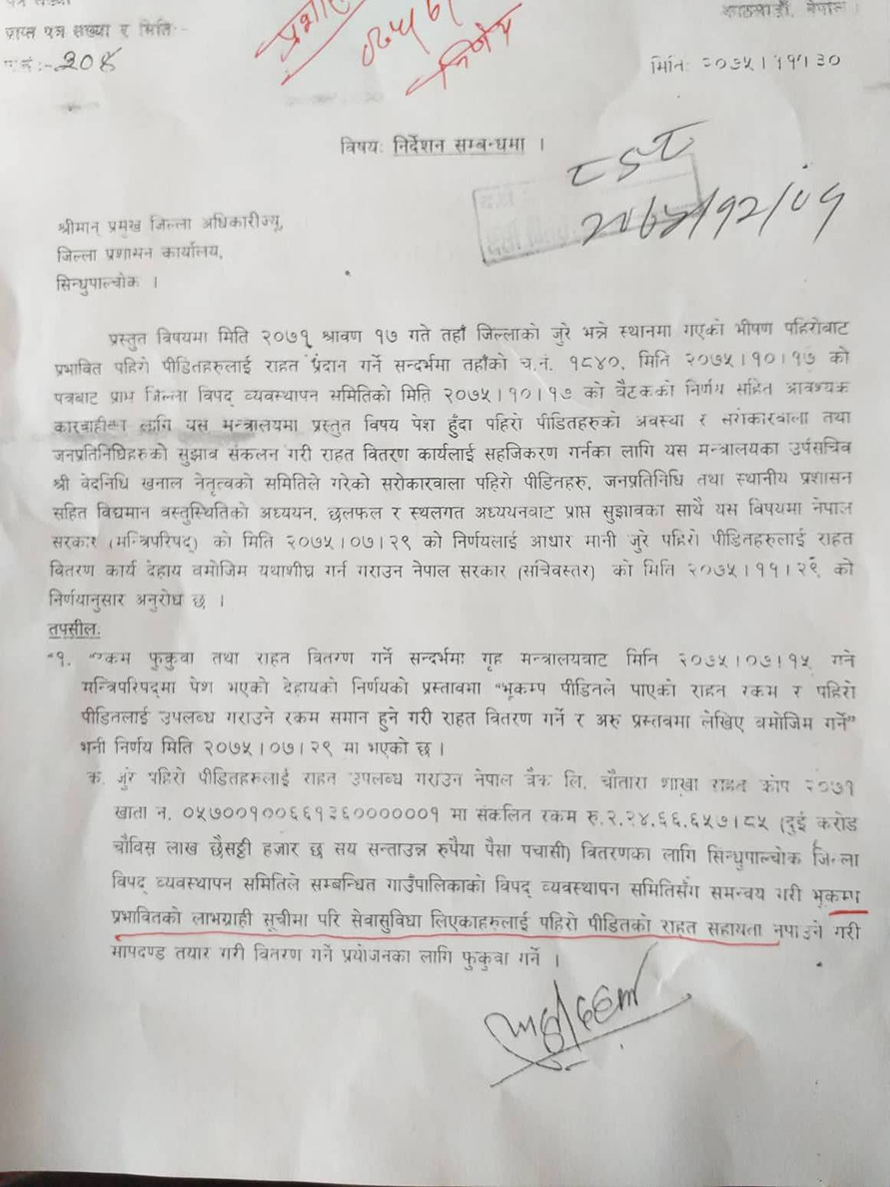 पत्र संख्या
काठमाडौं, नेपाल ।
प्राप्त पत्र संख्या र मितिः-
च.नं.:- २०४
मितिः २०७५।११।३०
विषयः निर्देशन सम्बन्धमा ।
२०७५/१२/०५
श्रीमान् प्रमुख जिल्ला अधिकारीज्यू,
जिल्ला प्रशासन कार्यालय,
सिन्धुपाल्चोक ।
प्रस्तुत विषयमा मिति २०७१ श्रावण १७ गते तहाँ जिल्लाको जुरे भन्ने स्थानमा गएको भीषण पहिरोबाट
प्रभावित पहिरो पीडितहरुलाई राहत प्रदान गर्ने सन्दर्भमा तहाँको च.नं. १८४०, मिति २०७५।१०।१७ को
पत्रबाट प्राप्त जिल्ला विपद् व्यवस्थापन समितिको मिति २०७५।१०।१७ को बैटकको निर्णय सहित आवश्यक
कारवाहीका लागि यस मन्त्रालयमा प्रस्तुत विषय पेश हुँदा पहिरो पीडितहरुको अवस्था र सरोकारवाला तथा
जनप्रतिनिधिहरुको सुझाव संकलन गरी राहत वितरण कार्यलाई सहजिकरण गर्नका लागि यस मन्त्रालयका उपसचिव
श्री वेदनिधि खनाल नेतृत्वको समितिले गरेको सरोकारवाला पहिरो पीडितहरु, जनप्रतिनिधि तथा स्थानीय प्रशासन
सहित विद्यमान वस्तुस्थितिको अध्ययन, छलफल र स्थलगत अध्ययनबाट प्राप्त सुझावका साथै यस विषयमा नेपाल
सरकार (मन्त्रिपरिषद्) को मिति २०७५।०७।२९ को निर्णयलाई आधार मानी जुरे पहिरो पीडितहरुलाई राहत
वितरण कार्य देहाय वमोजिम यथाशीघ्र गर्न गराउन नेपाल सरकार (सचिवस्तर) को मिति २०७५।११।२९ को
निर्णयानुसार अनुरोध छ ।
तपसील:
"१. रकम फुकुवा तथा राहत वितरण गर्ने सन्दर्भमा गृह मन्त्रालयबाट मिति २०७५।०७।१५ गते
मन्त्रिपरिषद्मा पेश भएको देहायको निर्णयको प्रस्तावमा "भूकम्प पीडितले पाएको राहत रकम र पहिरो
पीडितलाई उपलब्ध गराउने रकम समान हुने गरी राहत वितरण गर्ने र अरु प्रस्तवमा लेखिए बमोजिम गर्ने"
भनी निर्णय मिति २०७५।०७।२९ मा भएको छ ।
क. जुरे पहिरो पीडितहरुलाई राहत उपलब्ध गराउन नेपाल बैंक लि. चौतारा शाखा राहत कोष २०७१
खाता नं. ०५७००१००६६१३६०००००००१ मा संकलित रकम रु.२,२४,६६,६५७।८५ (दुई करोड
चौविस लाख छैसट्ठी हजार छ सय सन्ताउन्न रुपैया पैसा पचासी) वितरणका लागि सिन्धुपाल्चोक जिल्ला
विपद् व्यवस्थापन समितिले सम्बन्धित गाउँपालिकाको विपद् व्यवस्थापन समितिसँग समन्वय गरी भूकम्प
प्रभावितको लाभग्राही सूचीमा परि सेवासुविधा लिएकाहरुलाई पहिरो पीडितको राहत सहायता नपाउने गरी
मापदण्ड तयार गरी वितरण गर्ने प्रयोजनका लागि फुकुवा गर्ने ।